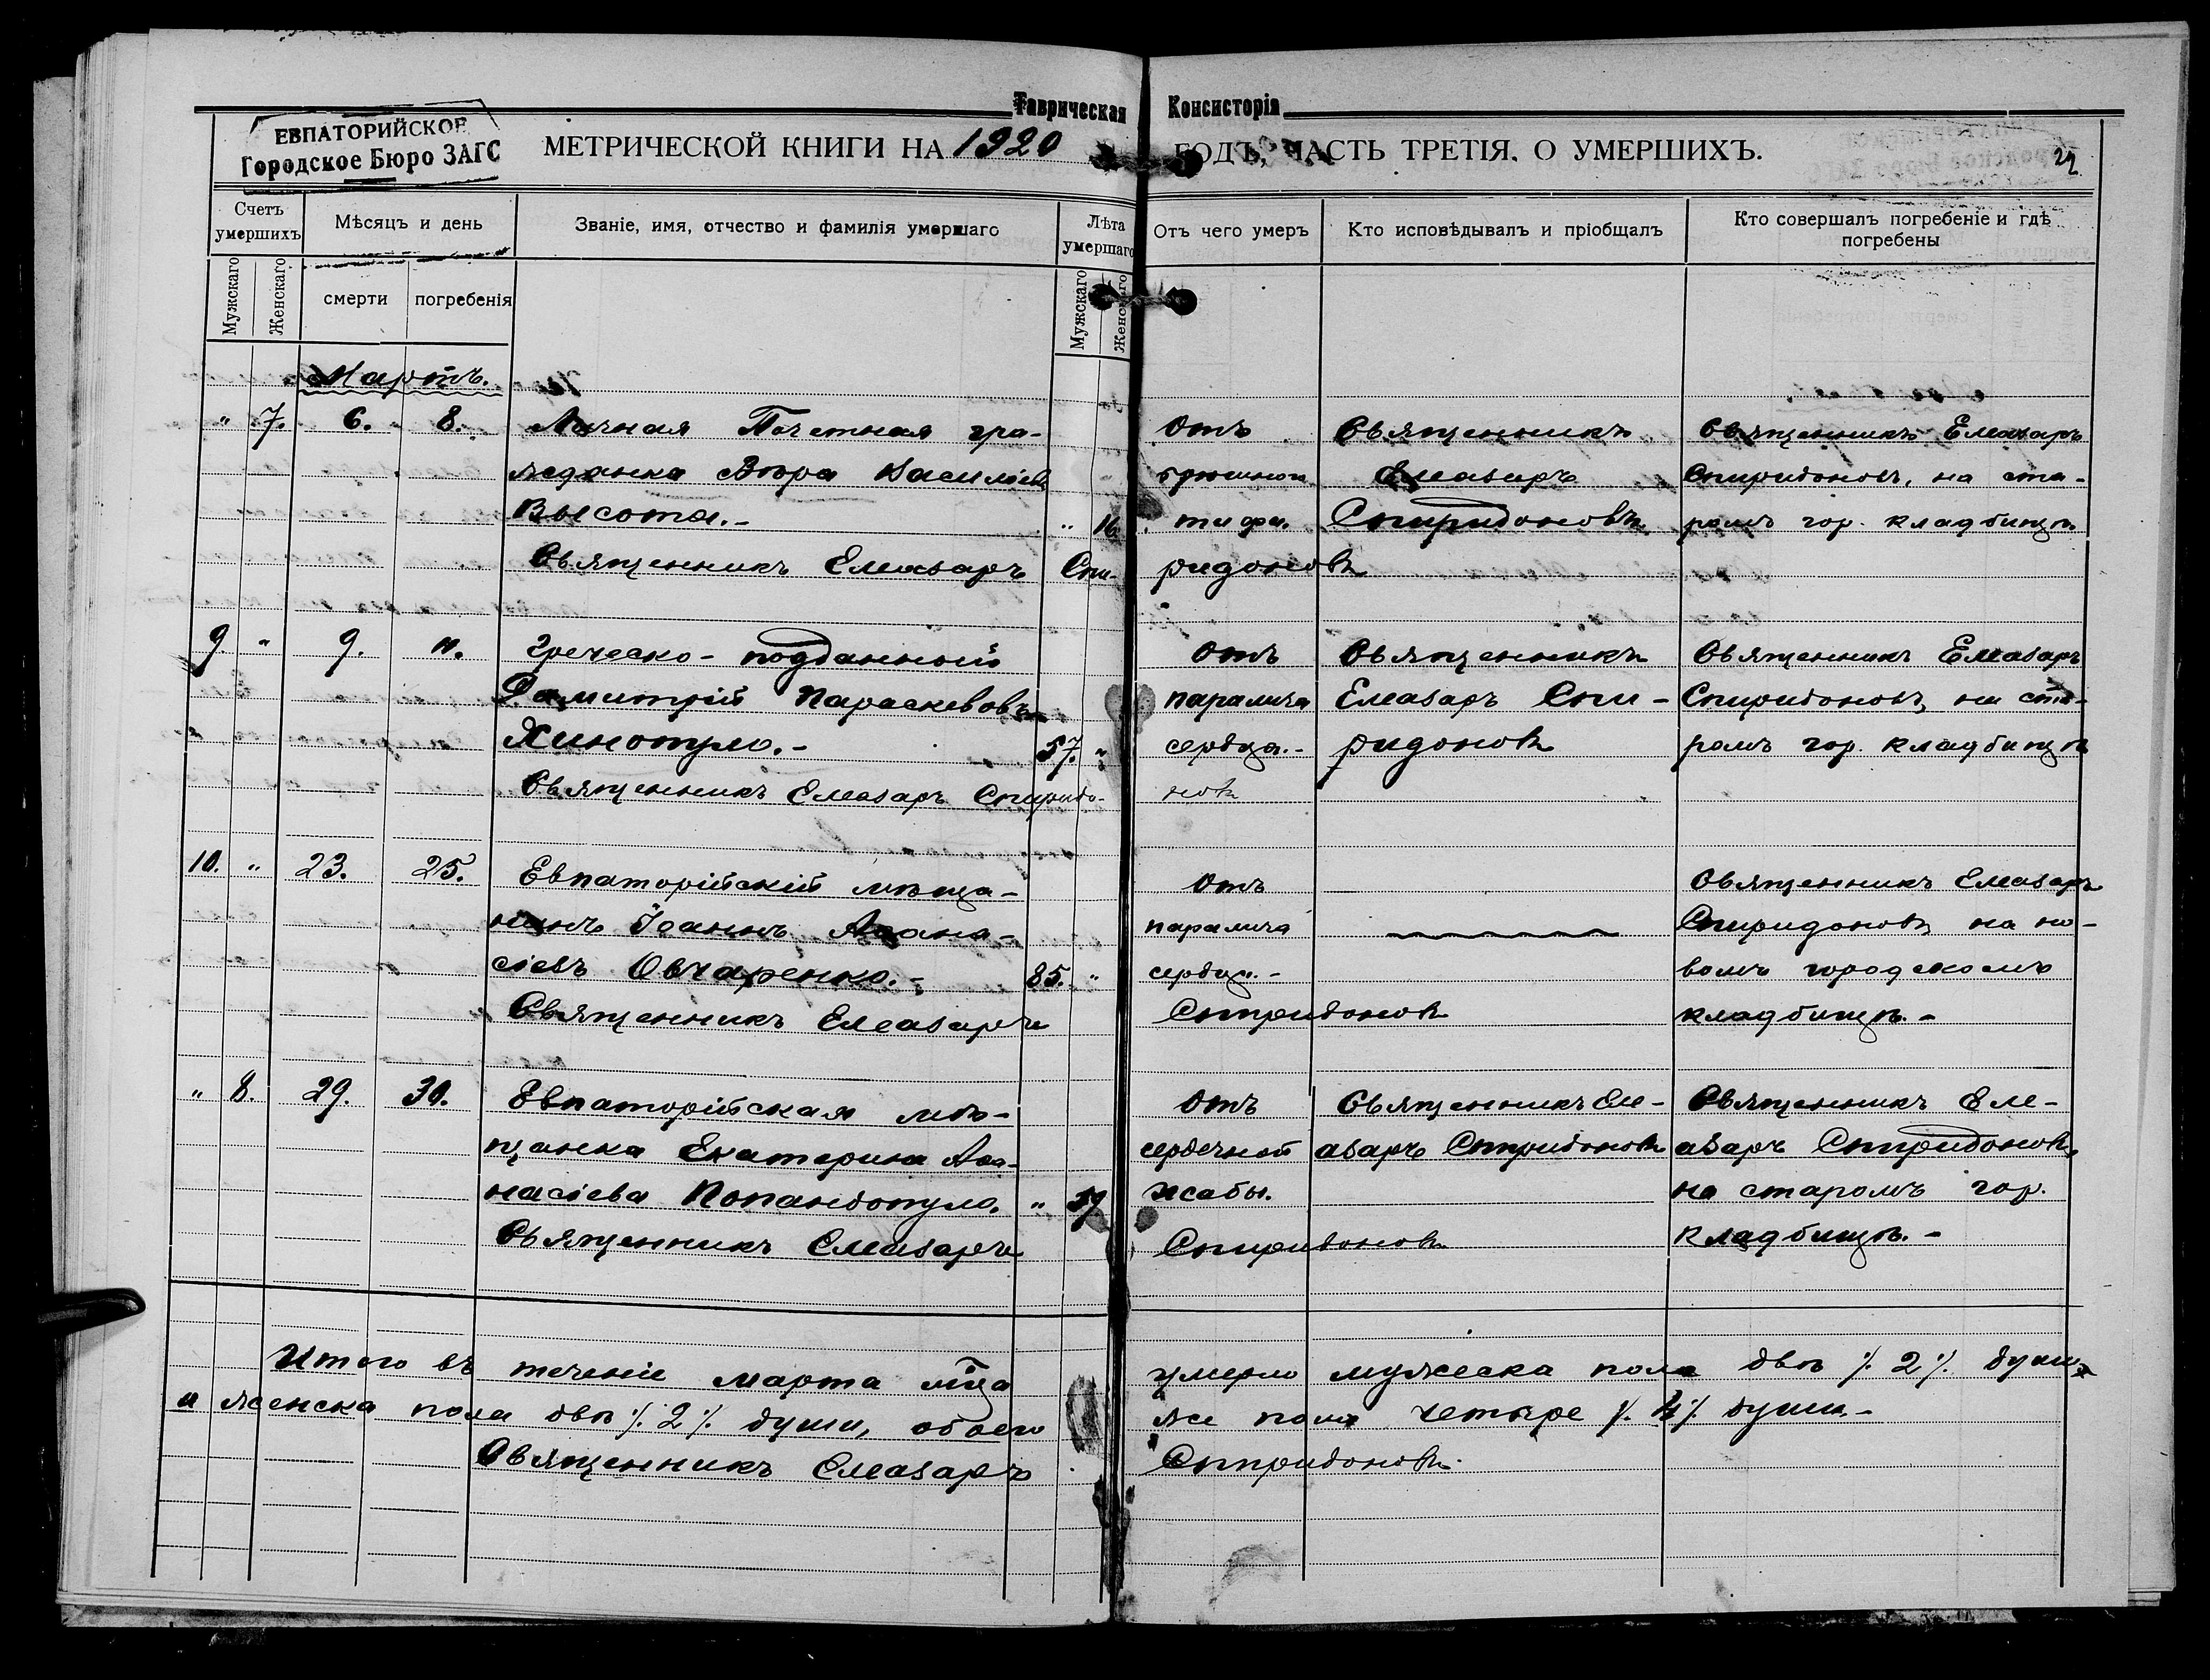 Таврическая Консисторія
ЕВПАТОРИЙСКОЕ
Городское Бюро ЗАГС
МЕТРИЧЕСКОЙ КНИГИ НА 1920 ГОДЪ, ЧАСТЬ ТРЕТІЯ. О УМЕРШИХЪ.
Счетъ умершихъ
Мѣсяцъ и день
Званіе, имя, отчество и фамилія умершаго
Лѣта умершаго
Отъ чего умеръ
Кто исповѣдывалъ и пріобщалъ
Кто совершалъ погребеніе и гдѣ погребены
Мужскаго
Женскаго
смерти
погребенія
Мужскаго
Женскаго
Мартъ.
" 7. 6. 8. Личная Почетная гра- Отъ Священникъ Священникъ Елеазаръ
жданка Вѣра Василіева брюшного Елеазаръ Спиридоновъ, на ста-
Высота.- " 16. тифа. Спиридоновъ ромъ гор. кладбищѣ
Священникъ Елеазаръ Спи- ридоновъ
9 " 9. 11. Греческо-подданный Отъ Священникъ Священникъ Елеазаръ
Димитрій Параскевовъ паралича Елеазаръ Спи- Спиридоновъ, на ста-
57. " сердца.- ридоновъ ромъ гор. кладбищѣ
Священникъ Елеазаръ Спиридо- новъ
10. " 23. 25. Евпаторійскій мѣща- Отъ Священникъ Елеазаръ
нинъ Іоаннъ Аѳана- паралича Спиридоновъ, на но-
сіевъ Овчаренко.- 85. " сердца.- вомъ городскомъ
Священникъ Елеазаръ Спиридоновъ кладбищѣ.-
" 8. 29. 30. Евпаторійская мѣ- Отъ Священникъ Еле- Священникъ Еле-
щанка Екатерина Аѳа- сердечной азаръ Спиридоновъ азаръ Спиридоновъ,
насіева Попандопуло. " жабы. на старомъ гор.
Священникъ Елеазаръ Спиридоновъ кладбищѣ.-
Итого въ теченіе марта мца умерло мужеска пола двѣ ⁒ 2 ⁒ души
и женска пола двѣ ⁒ 2 ⁒ души, обоего же пола четыре ⁒ 4 ⁒ души.-
Священникъ Елеазаръ Спиридоновъ.